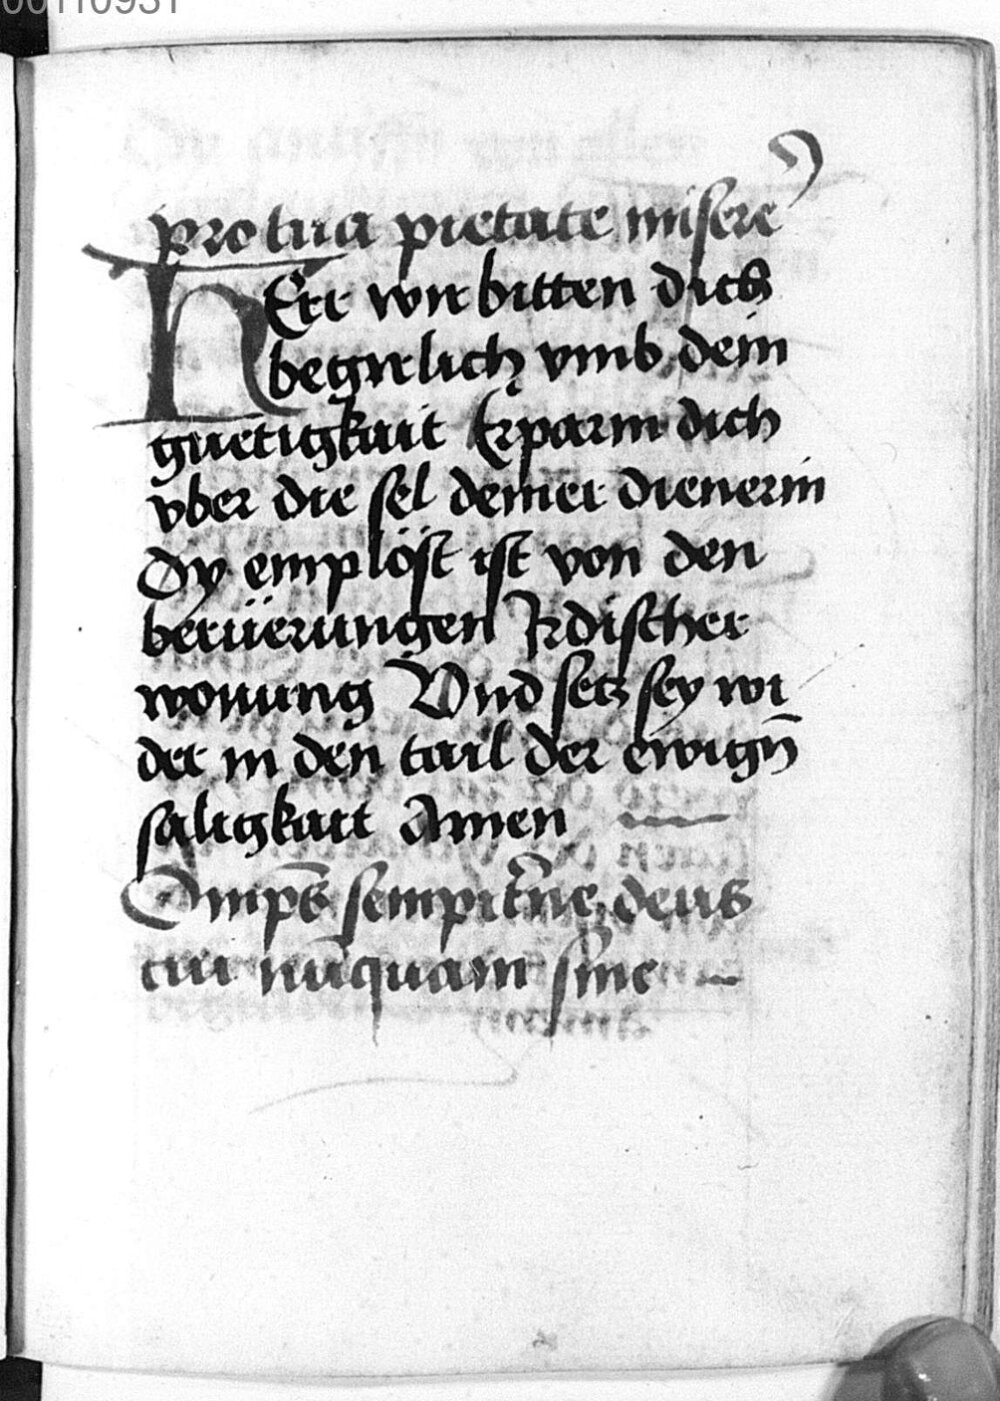 00110931
pro tua pietate misere
HErr wir bitten dich
begirlich vmb dein
guetigkait Erparm dich
vber die sel deiner dienerin
dy emplöst ist von den
berüerungen Irdischer
wonung Vnd setz sey wi
der in den tail der ewign̄
saligkait Amen
Omp̄s sempit̄ne deus
cui nūquam sine